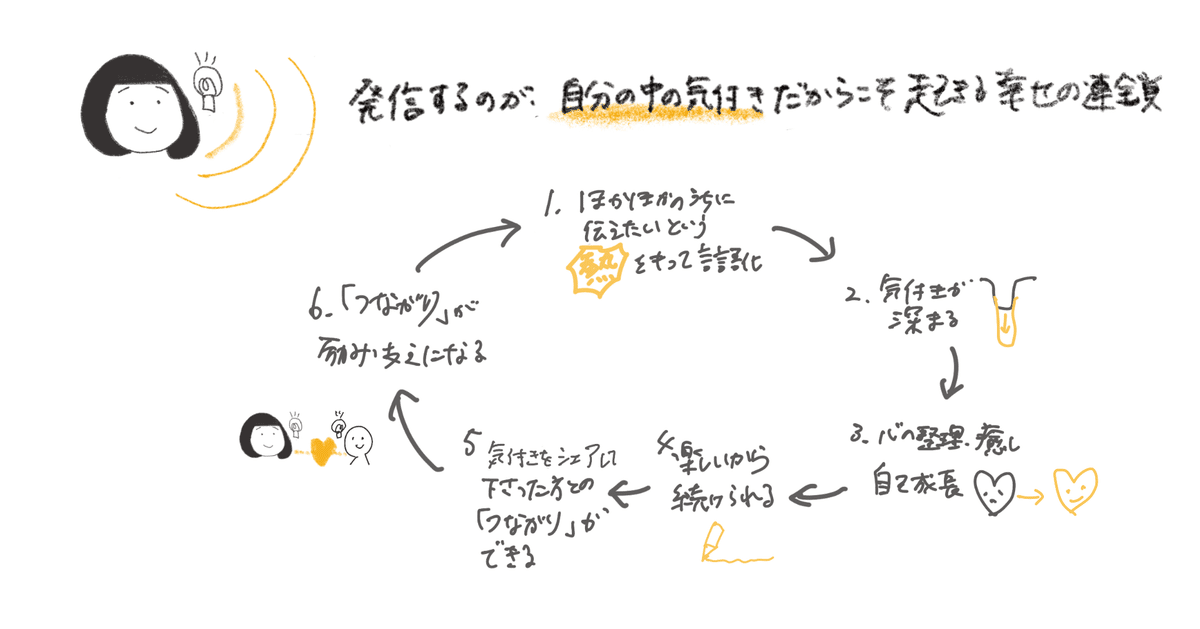 発信するのが、自分の中の気付きだからこそ起きる幸せの連鎖
1. ほかほかのうちに
伝えたいという
熱をもって言語化
2. 気付きが
深まる
3. 心の整理・癒し
自己成長
4. 楽しいから
続けられる
5 気付きをシェアして
下さった方との
「つながり」が
できる
6.「つながり」が
励み・支えになる